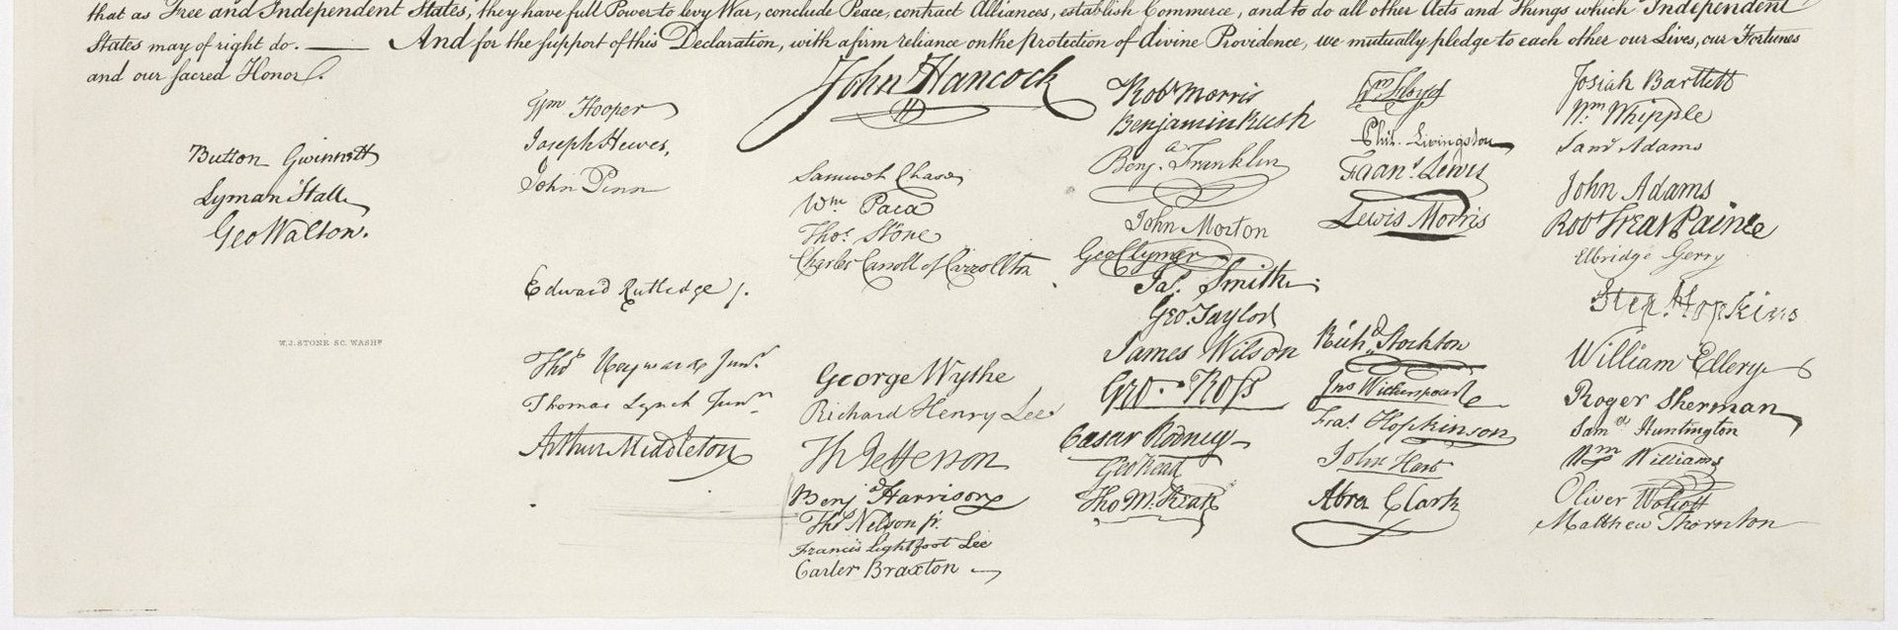 that as Free and Independent States, they have full Power to levy War, conclude Peace, contract Alliances, establish Commerce, and to do all other Acts and Things which Independent
States may of right do. — And for the support of this Declaration, with a firm reliance on the protection of divine Providence, we mutually pledge to each other our Lives, our Fortunes
and our sacred Honor.
Button Gwinnett
Lyman Hall
Geo Walton.
W. J. STONE SC. WASHN
Wm Hooper
Joseph Hewes,
John Penn
Edward Rutledge /.
Thos Heyward Junr.
Thomas Lynch Junr.
Arthur Middleton
John Hancock
Samuel Chase
Wm Paca
Thos. Stone
Charles Carroll of Carrollton
George Wythe
Richard Henry Lee
Th Jefferson
Benja Harrison
Thos Nelson jr.
Francis Lightfoot Lee
Carter Braxton
Robt Morris
Benjamin Rush
Benja. Franklin
John Morton
Geo Clymer
Jas. Smith
Geo. Taylor
James Wilson
Geo. Ross
Caesar Rodney
Geo Read
Tho M:Kean
Wm Floyd
Phil. Livingston
Frans. Lewis
Lewis Morris
Richd. Stockton
Jno Witherspoon
Fras. Hopkinson
John Hart
Abra Clark
Josiah Bartlett
Wm. Whipple
Saml Adams
John Adams
Robt Treat Paine
Elbridge Gerry
Step. Hopkins
William Ellery
Roger Sherman
Saml Huntington
Wm Williams
Oliver Wolcott
Matthew Thornton